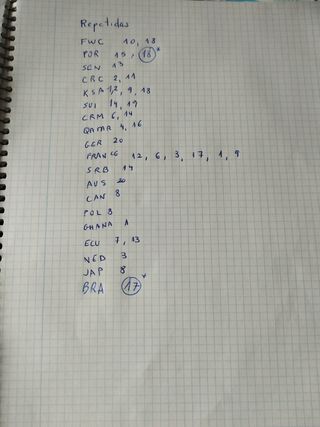 Repetidas
FWC 10, 18
POR 15, 18*
SEN 13
CRC 2, 11
KSA 12, 9, 18
SUI 14, 19
CRM 6, 14
QATAR 4, 16
GER 20
FRANCE 12, 6, 3, 17, 1, 9
SRB 14
AUS 20
CAN 8
POL 3
GHANA 1
ECU 7, 13
NED 3
JAP 8
BRA 17*